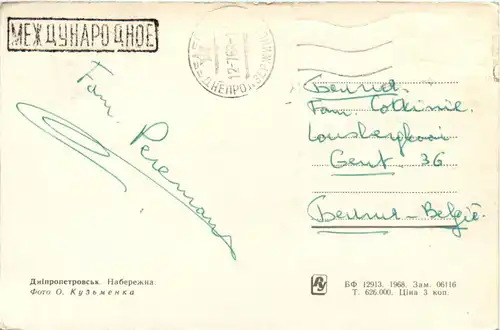 МЕЖДУНАРОДНОЕ
ДНЕПРОДЗЕРЖИНСК
Fam. Peremans
Белгия
Fam.
Gent 36
Белгия - België
Дніпропетровськ. Набережна.
Фото О. Кузьменка
БФ 12913. 1968. Зам. 06116
Т. 626.000. Ціна 3 коп.